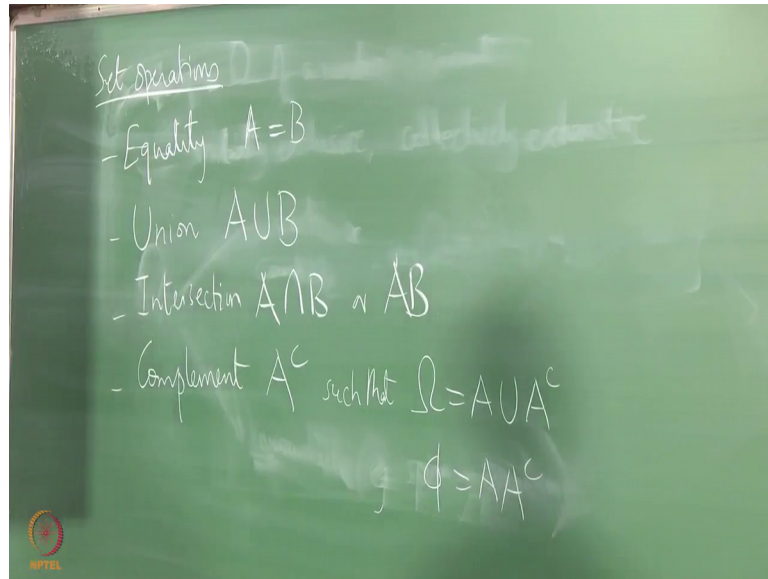 Set operations
- Equality A = B
- Union A∪B
- Intersection A∩B or AB
- Complement Aᶜ such that Ω = A∪Aᶜ
ϕ = AAᶜ
NPTEL